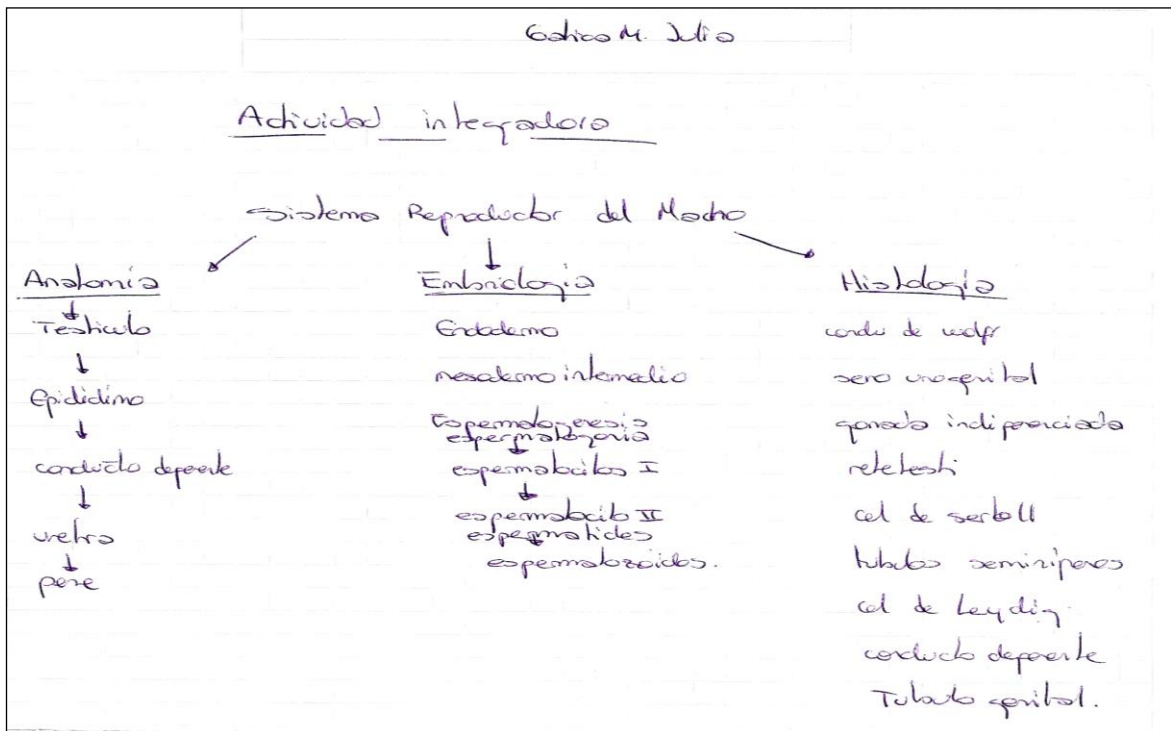 Gatica M. Julia
Actividad integradora
Sistema Reproductor del Macho
Anatomía
Testiculo
Epididimo
conducto deferente
uretra
pene
Embriologia
Endodermo
mesodermo intermedio
Espermatogenesis
espermatogonia
espermatocitos I
espermatocito II
espermatides
espermatozoides.
Histología
condu de wolff
seno urogenital
gonada indiferenciada
rete testi
cel de sertoli
tubulos seminiferos
cel de Leydig.
conducto deferente
Tubulo genital.